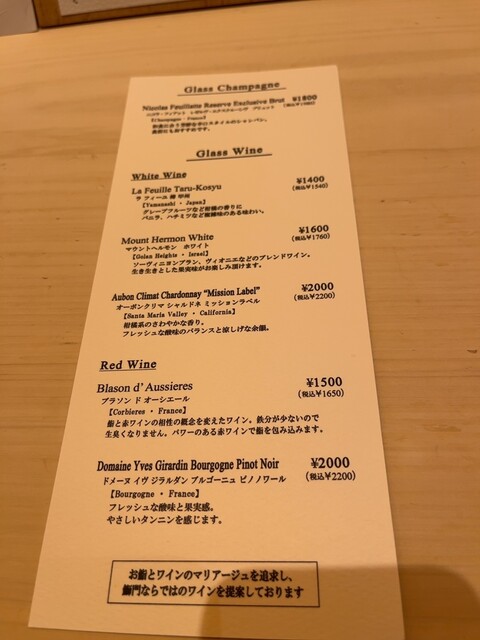 Glass Champagne
Nicolas Feuillatte Reserve Exclusive Brut ¥1800
ニコラ・フィアット レゼルヴ・エクスクルーシヴ ブリュット (税込¥1980)
【Champagne・France】
和食に合う芳醇な辛口スタイルのシャンパン。
食前にもおすすめです。
Glass Wine
White Wine
La Feuille Taru-Kosyu ¥1400
ラ フィーユ 樽 甲州 (税込¥1540)
【Yamanashi・Japan】
グレープフルーツなど柑橘の香りに
バニラ、ハチミツなど複雑味のある味わい。
Mount Hermon White ¥1600
マウントヘルモン ホワイト (税込¥1760)
【Golan Heights・Israel】
ソーヴィニヨンブラン、ヴィオニエなどのブレンドワイン。
生き生きとした果実味がお楽しみ頂けます。
Aubon Climat Chardonnay “Mission Label” ¥2000
オーボンクリマ シャルドネ ミッションラベル (税込¥2200)
【Santa Maria Valley・California】
柑橘系のさわやかな香り。
フレッシュな酸味のバランスと涼しげな余韻。
Red Wine
Blason d’Aussieres ¥1500
ブラソン ド オーシエール (税込¥1650)
【Corbieres・France】
鮨と赤ワインの相性の概念を変えたワイン。鉄分が少ないので
生臭くなりません。パワーのある赤ワインで鮨を包み込みます。
Domaine Yves Girardin Bourgogne Pinot Noir ¥2000
ドメーヌ イヴ ジラルダン ブルゴーニュ ピノノワール (税込¥2200)
【Bourgogne・France】
フレッシュな酸味と果実感。
やさしいタンニンを感じます。
お鮨とワインのマリアージュを追求し、
獅門ならではのワインを提案しております